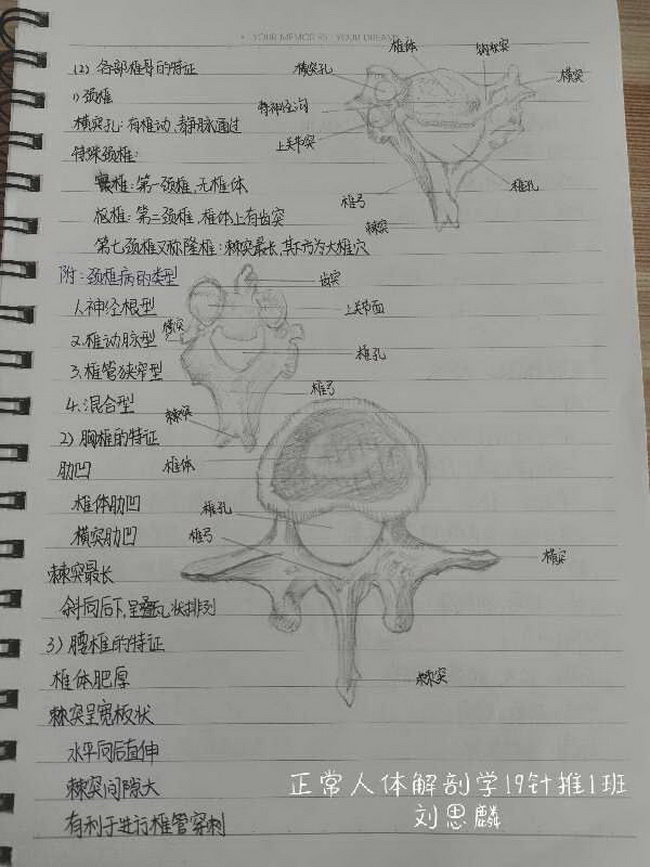 YOUR MEMORIES / YOUR DREAM
(2) 各部椎骨的特征
1) 颈椎
横突孔: 有椎动、静脉通过
特殊颈椎:
寰椎: 第一颈椎, 无椎体
枢椎: 第二颈椎, 椎体上有齿突
第七颈椎又称隆椎: 棘突最长, 其下方为大椎穴
附: 颈椎病的类型
1.神经根型
2.椎动脉型
3.椎管狭窄型
4.混合型
2) 胸椎的特征
肋凹
椎体肋凹
横突肋凹
棘突最长
斜向后下, 呈叠瓦状排列
3) 腰椎的特征
椎体肥厚
棘突呈宽板状
水平向后直伸
棘突间隙大
有利于进行椎管穿刺
椎体
钩状突
横突孔
横突
脊神经沟
上关节突
椎孔
椎弓
棘突
齿突
上关节面
横突
椎孔
椎弓
棘突
椎体
椎孔
椎弓
横突
棘突
正常人体解剖学19针推1班
刘思麟